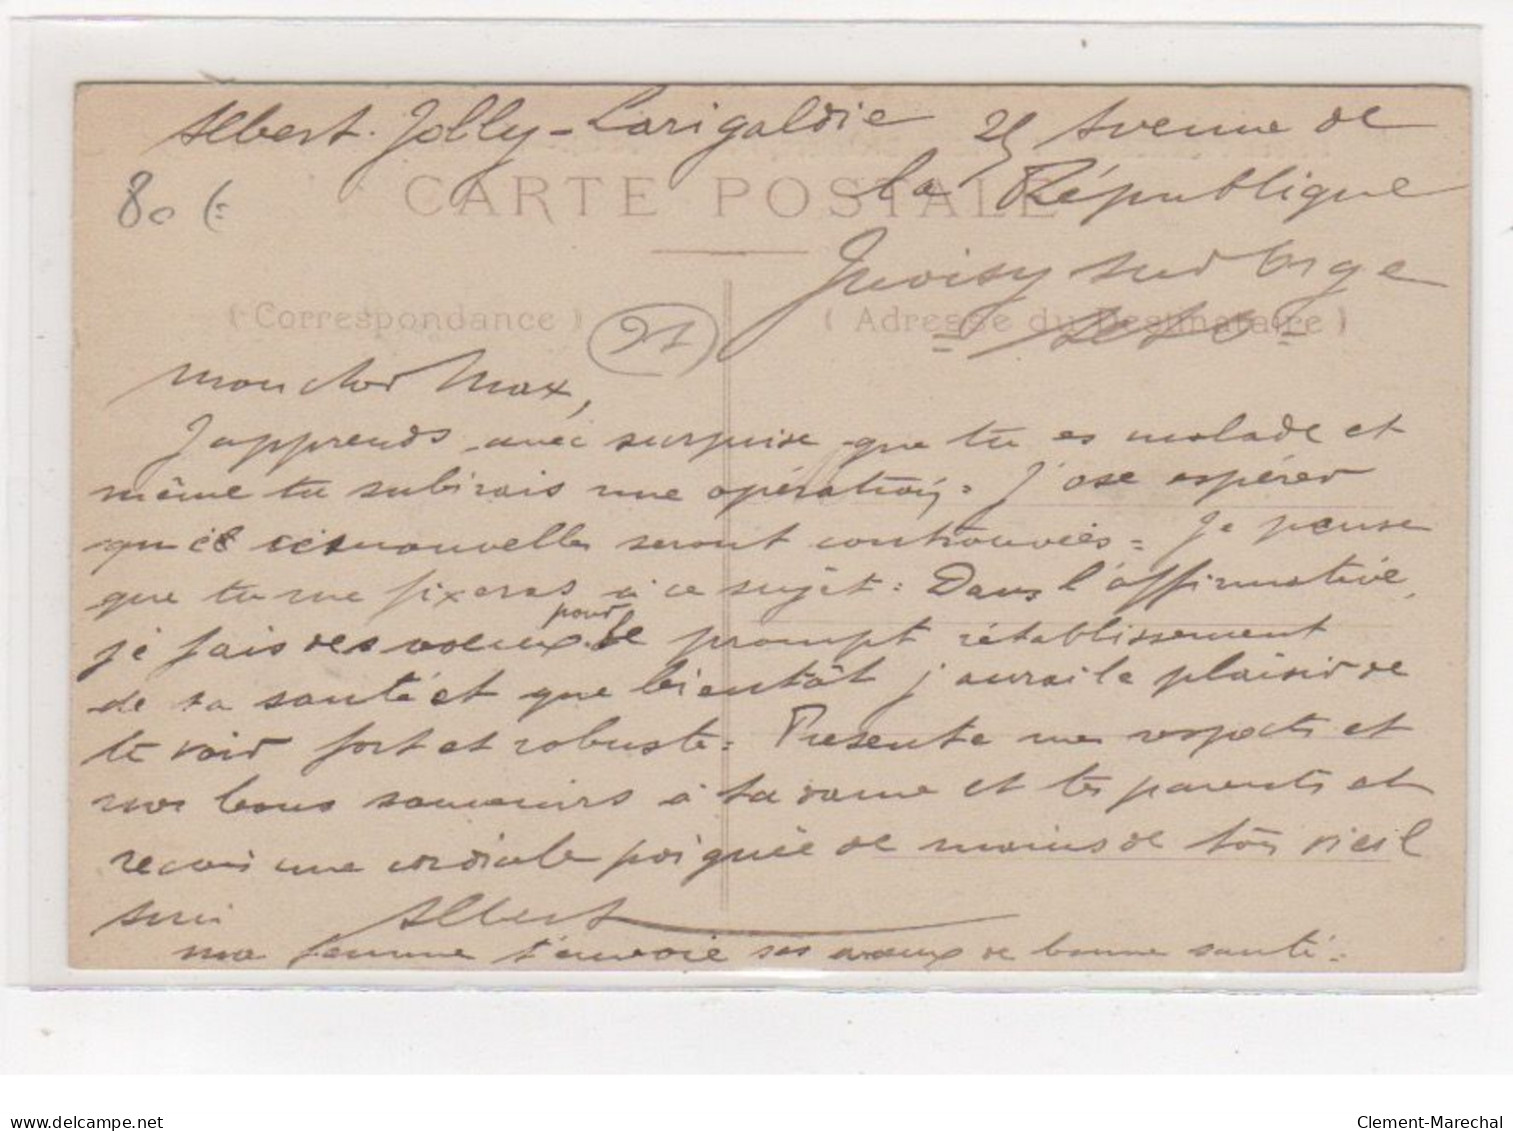 Albert Jolly-Larigaldie 25 Avenue de
la République
80 €
CARTE POSTALE
Juvisy sur Orge
(Correspondance)
91
(Adresse du Destinataire)
= S & O =
Mon cher Max,
J'apprends avec surprise que tu es malade et
même tu subirais une opération = J'ose espérer
que ces nouvelles seront controuvées = Je pense
que tu me fixeras à ce sujet : Dans l'affirmative,
je fais des voeux pour le prompt rétablissement
de ta santé et que bientôt j'aurai le plaisir de
te voir fort et robuste = Présente mes respects et
mes bons souvenirs à ta dame et tes parents et
reçois une cordiale poignée de mains de ton vieil
ami Albert
ma femme t'envoie ses voeux de bonne santé =
delcampe.net
Clement-Marechal